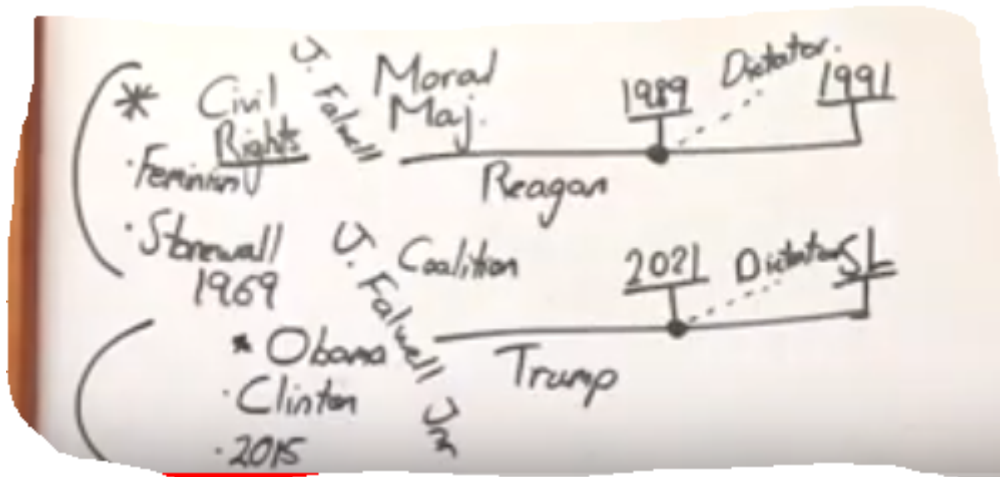 * Civil
Rights
· Feminism
· Stonewall
1969
J. Falwell
Moral
Maj.
Reagan
1989
Dictator.
1991
* Obama
· Clinton
· 2015
J. Falwell Jnr
Coalition
Trump
2021
Dictator
SL